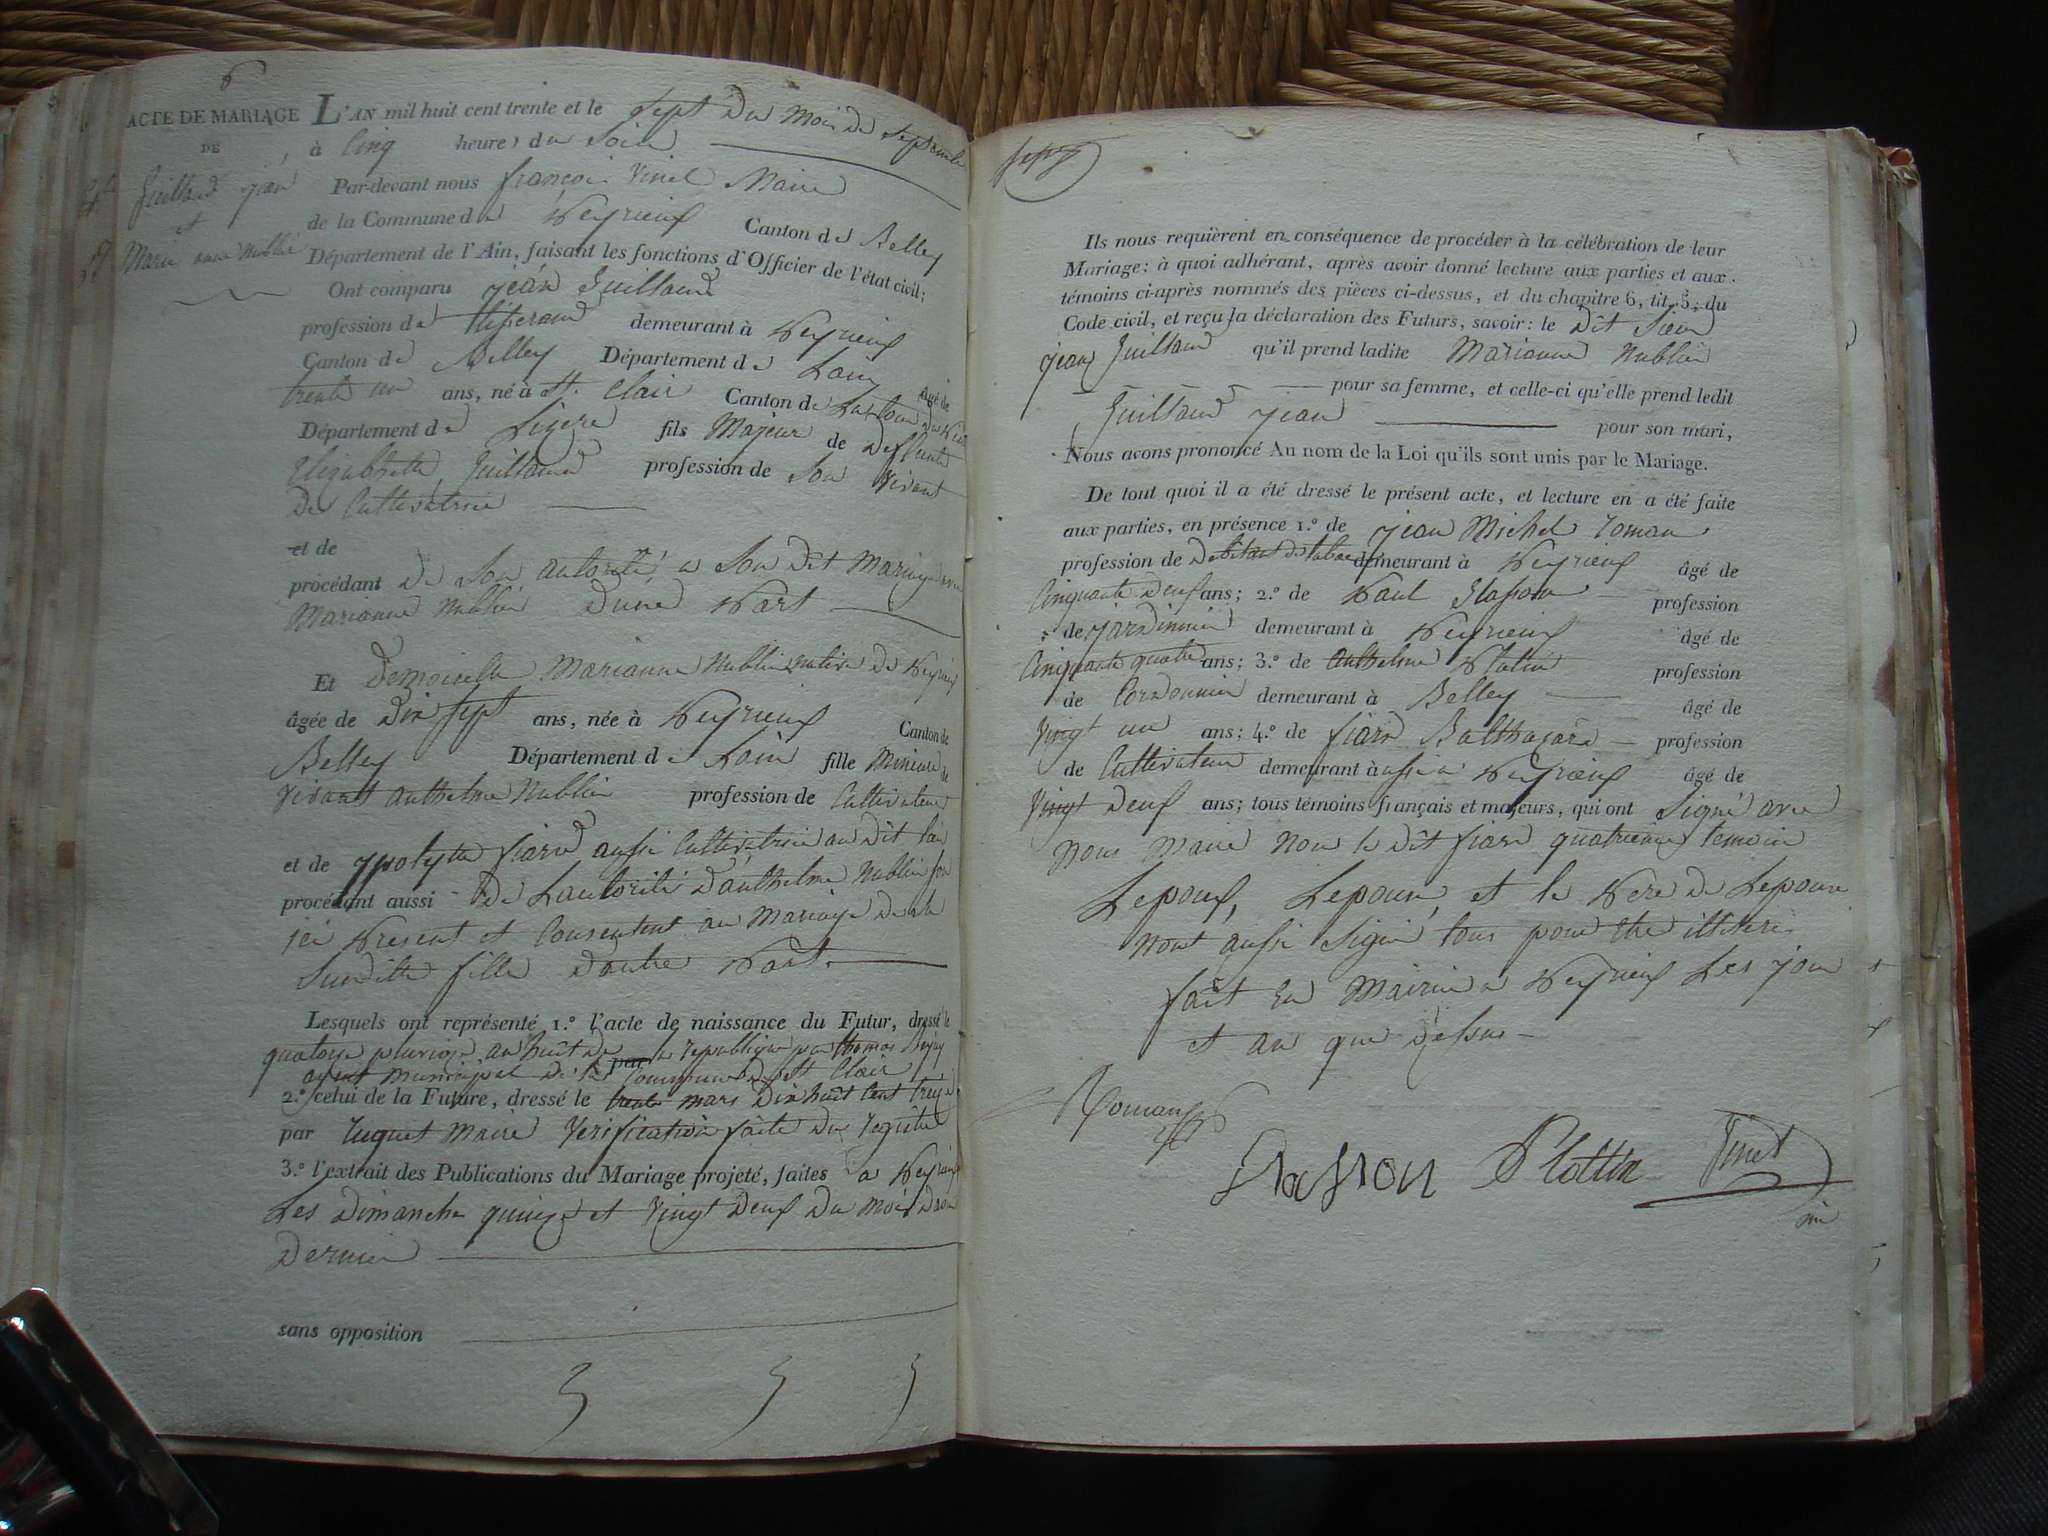 6
ACTE DE MARIAGE L'AN mil huit cent trente et le sept du mois de septembre
DE , à Cinq heures du Soir
Guilland jean Par-devant nous françois Vinet Maire
et de la Commune de Peyrieux Canton de Belley
Marie anne Nublin Département de l'Ain, faisant les fonctions d'Officier de l'état civil;
Ont comparu jean Guilland
profession de tisserand demeurant à Peyrieux
Canton de Belley Département de Lain âgé de
trente un ans, né à St. Clair Canton de Latour du Pin
Département de Lizere fils Majeur de deffunte
Elizabeth Guilland profession de Son vivant
De Cultivatrice
et de
procédant de Son autorité a Son dit Mariage avec
Marianne Nublin Dune Part
Et Demoiselle Marianne Nublin native de Peyrieux
âgée de Dix Sept ans, née à Peyrieux Canton de
Belley Département de Lain fille Mineure de
vivant anthelme Nublin profession de Cultivateur
et de ypolyte fiard aussi Cultivatrice au dit lieu
procédant aussi De Lautorité Danthelme Nublin Son
ici Present et Consentent au Mariage de la
Susditte fille Dautre Part.
Lesquels ont représenté 1.º l'acte de naissance du Futur, dressé le
quatorze pluviose an huit de la republique par thomas
agent municipal de la Commune de St Clair
2.º celui de la Future, dressé le trente mars Dix huit Cent treize
par tuquet Maire Verification faite du registre
3.º l'extrait des Publications du Mariage projeté, faites a Peyrieux
Les Dimanche quinze et Vingt Deux Du Mois Daout
Dernier
sans opposition
sept
Ils nous requièrent en conséquence de procéder à la célébration de leur
Mariage: à quoi adhérant, après avoir donné lecture aux parties et aux
témoins ci-après nommés des pièces ci-dessus, et du chapitre 6, tit. 5, du
Code civil, et reçu la déclaration des Futurs, savoir: le Dit Sieur
jean Guilland qu'il prend ladite Marianne Nublin
pour sa femme, et celle-ci qu'elle prend ledit
Guilland jean pour son mari,
Nous avons prononcé Au nom de la Loi qu'ils sont unis par le Mariage.
De tout quoi il a été dressé le présent acte, et lecture en a été faite
aux parties, en présence 1.º de jean Michel roman
profession de Debitant de tabac demeurant à Peyrieux âgé de
Cinquante Deux ans; 2.º de Paul Flasson profession
de jardinnier demeurant à Peyrieux âgé de
Cinquante quatre ans; 3.º de anthelme Platin profession
de Cordonnier demeurant à Belley âgé de
Vingt un ans; 4.º de fiard Balthazard profession
de Cultivateur demeurant à aussi a Peyrieux âgé de
Vingt Deux ans; tous témoins français et majeurs, qui ont Signé avec
Nous Maire Non le Dit fiard quatrieme temoin
Lepoux, Lepouse, et le Pere de Lepouse
Nont aussi Signé tous pour être illiteré
fait en Mairie a Peyrieux Les jour
et an que Dessus
Roman
Flasson Plattin Vinet